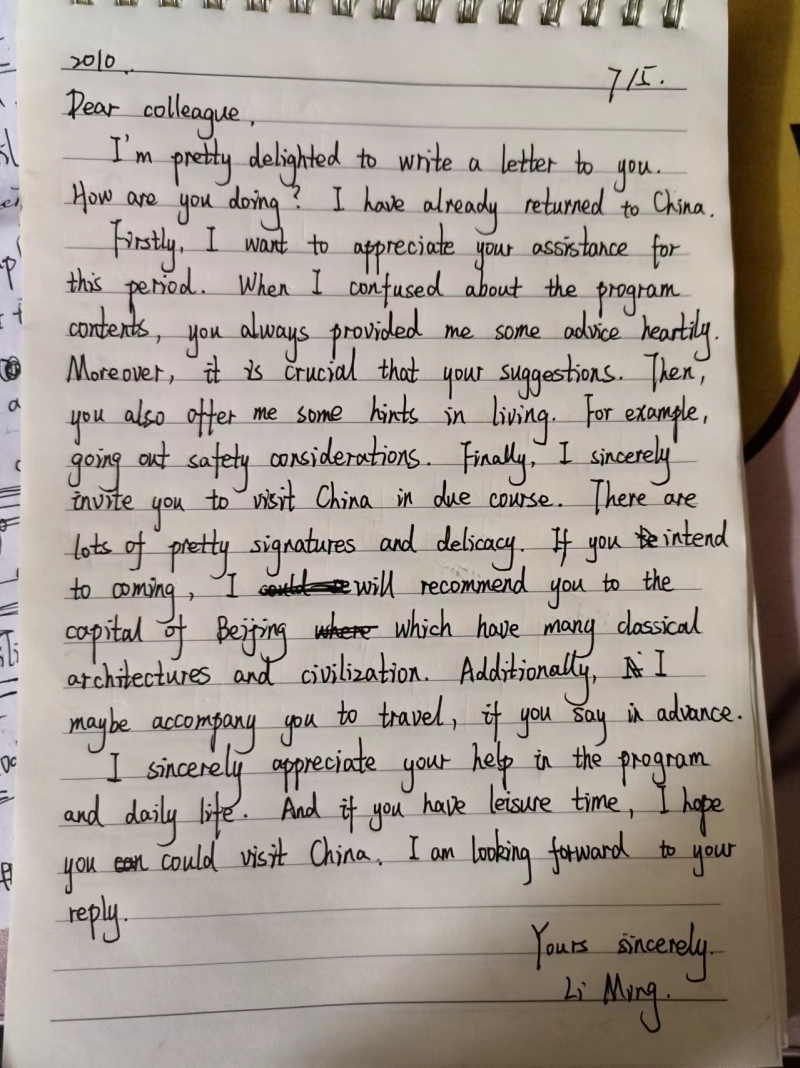 2010.
7/5.
Dear colleague,
I'm pretty delighted to write a letter to you.
How are you doing? I have already returned to China.
Firstly, I want to appreciate your assistance for
this period. When I confused about the program
contents, you always provided me some advice heartily.
Moreover, it is crucial that your suggestions. Then,
you also offer me some hints in living. For example,
going out safety considerations. Finally, I sincerely
invite you to visit China in due course. There are
lots of pretty signatures and delicacy. If you intend
to coming, I will recommend you to the
capital of Beijing which have many classical
architectures and civilization. Additionally, I
maybe accompany you to travel, if you say in advance.
I sincerely appreciate your help in the program
and daily life. And if you have leisure time, I hope
you could visit China. I am looking forward to your
reply.
Yours sincerely.
Li Ming.